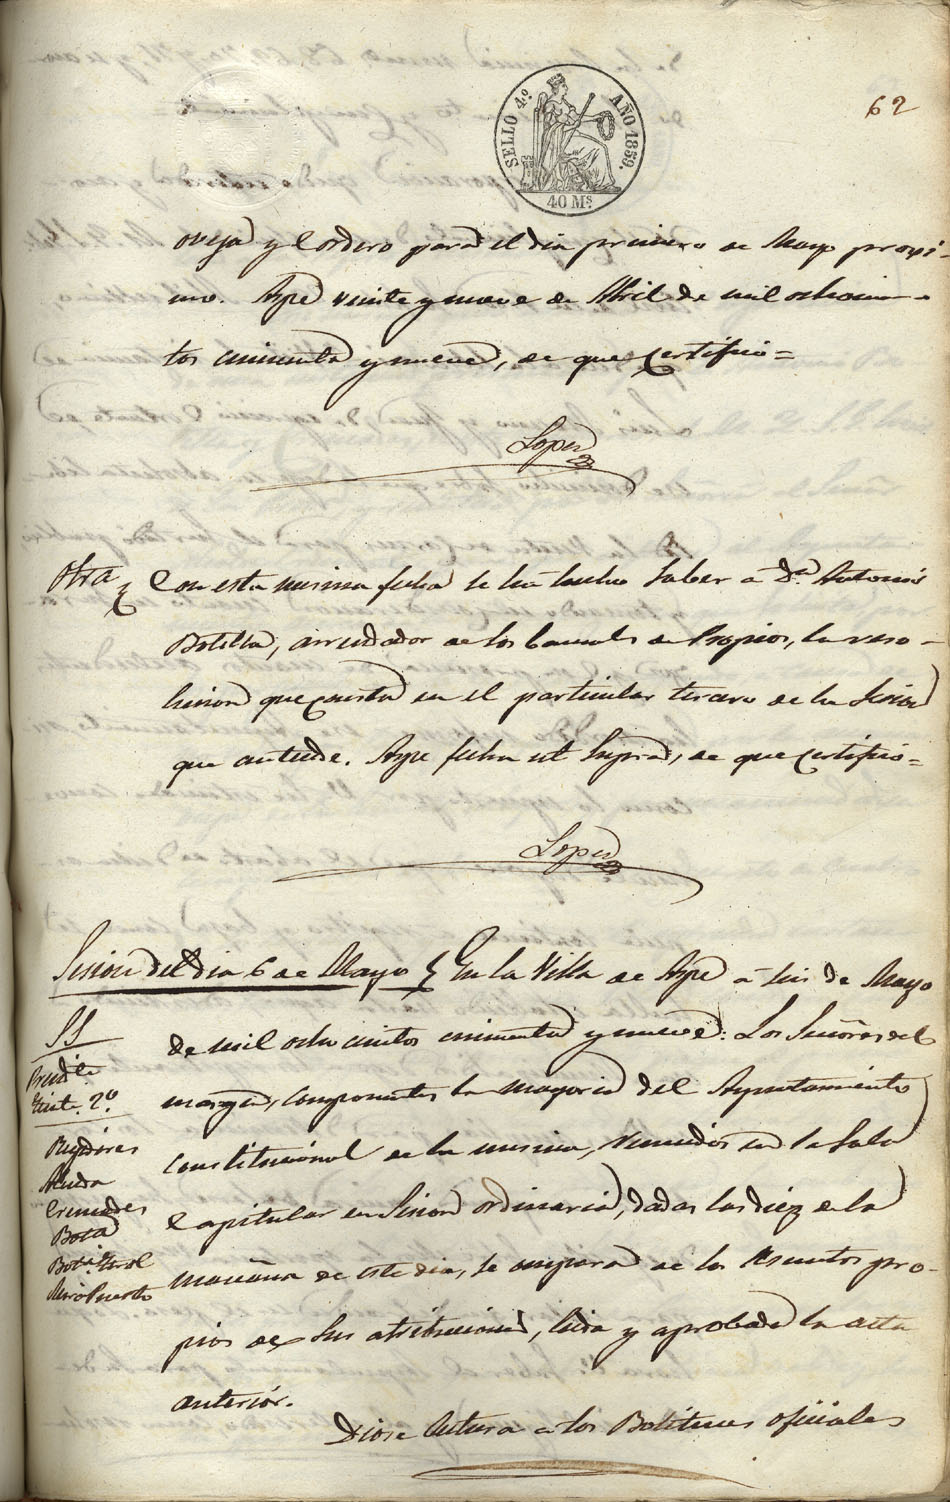 SELLO 4.º AÑO 1859.
40 Ms
62
oveja y Cordero para el dia primero de Mayo proxi-
mo. Aspe veinte y nueve de Abril de mil ochocien-
tos cincuenta y nueve, de que certifico=
Lopez
Otra
Con esta misma fecha se ha hecho saber a Dn Antonio
Botella, arrendador de los bancales de Propios, la reso-
lucion que consta en el particular tercero de la Sesion
que antecede. Aspe fecha ut Supra, de que certifico=
Lopez
Sesion del dia 6 de Mayo
En la Villa de Aspe a seis de Mayo
SS
de mil ochocientos cincuenta y nueve: Los Señores del
Presidte
Tente. 2º
margen, componentes la mayoria del Ayuntamiento
Regidores
Constitucional de la misma, reunidos en la Sala
Cremades
Capitular en Sesion ordinaria, dadas las diez de la
Botª
mañana de este dia, se ocupara de los Asuntos pro-
pios de sus atribuciones, leida y aprobada la acta
anterior.
Diose lectura a los Boletines oficiales